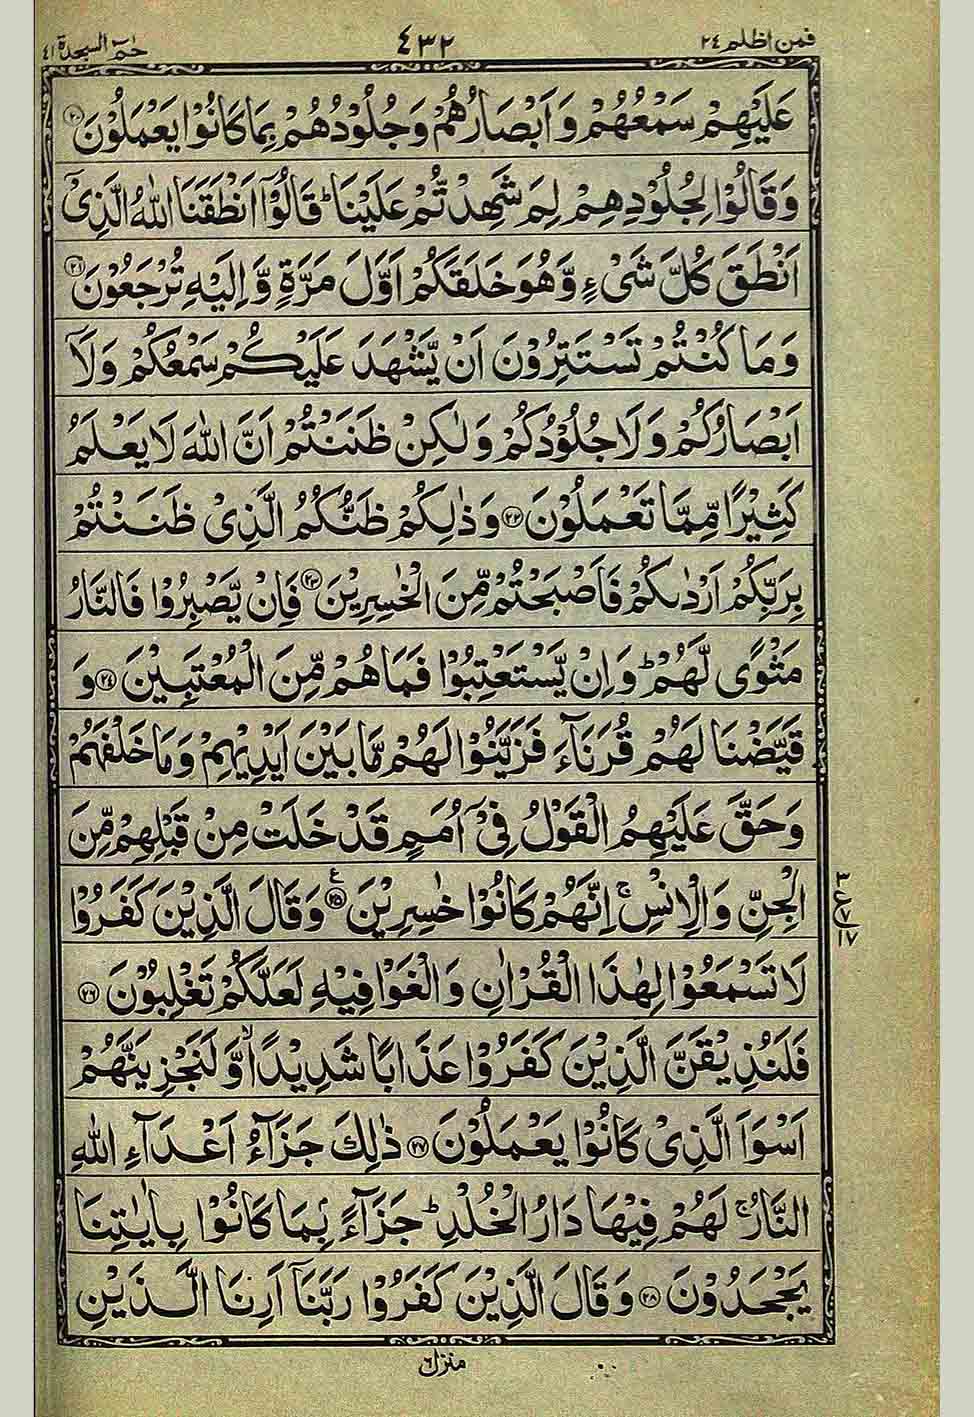 فمن اظلم ٢٤ ٤٣٢ حٰمٓ السجدة ٤١
عَلَيْهِمْ سَمْعُهُمْ وَاَبْصَارُهُمْ وَجُلُوْدُهُمْ بِمَا كَانُوْا يَعْمَلُوْنَ ﴿٢٠﴾
وَقَالُوْا لِجُلُوْدِهِمْ لِمَ شَهِدْتُّمْ عَلَيْنَا ؕ قَالُوْۤا اَنْطَقَنَا اللّٰهُ الَّذِیْۤ
اَنْطَقَ كُلَّ شَیْءٍ وَّهُوَ خَلَقَكُمْ اَوَّلَ مَرَّةٍ وَّاِلَيْهِ تُرْجَعُوْنَ ﴿٢١﴾
وَمَا كُنْتُمْ تَسْتَتِرُوْنَ اَنْ يَّشْهَدَ عَلَيْكُمْ سَمْعُكُمْ وَلَاۤ
اَبْصَارُكُمْ وَلَا جُلُوْدُكُمْ وَلٰكِنْ ظَنَنْتُمْ اَنَّ اللّٰهَ لَا يَعْلَمُ
كَثِيْرًا مِّمَّا تَعْمَلُوْنَ ﴿٢٢﴾ وَذٰلِكُمْ ظَنُّكُمُ الَّذِیْ ظَنَنْتُمْ
بِرَبِّكُمْ اَرْدٰىكُمْ فَاَصْبَحْتُمْ مِّنَ الْخٰسِرِيْنَ ﴿٢٣﴾ فَاِنْ يَّصْبِرُوْا فَالنَّارُ
مَثْوًی لَّهُمْ ؕ وَاِنْ يَّسْتَعْتِبُوْا فَمَا هُمْ مِّنَ الْمُعْتَبِيْنَ ﴿٢٤﴾ وَ
قَيَّضْنَا لَهُمْ قُرَنَآءَ فَزَيَّنُوْا لَهُمْ مَّا بَيْنَ اَيْدِيْهِمْ وَمَا خَلْفَهُمْ
وَحَقَّ عَلَيْهِمُ الْقَوْلُ فِیْۤ اُمَمٍ قَدْ خَلَتْ مِنْ قَبْلِهِمْ مِّنَ
الْجِنِّ وَالْاِنْسِ ۚ اِنَّهُمْ كَانُوْا خٰسِرِيْنَ ﴿٢٥﴾ ع وَقَالَ الَّذِيْنَ كَفَرُوْا
لَا تَسْمَعُوْا لِهٰذَا الْقُرْاٰنِ وَالْغَوْا فِيْهِ لَعَلَّكُمْ تَغْلِبُوْنَ ﴿٢٦﴾
فَلَنُذِيْقَنَّ الَّذِيْنَ كَفَرُوْا عَذَابًا شَدِيْدًا ۙ وَّلَنَجْزِيَنَّهُمْ
اَسْوَاَ الَّذِیْ كَانُوْا يَعْمَلُوْنَ ﴿٢٧﴾ ذٰلِكَ جَزَآءُ اَعْدَآءِ اللّٰهِ
النَّارُ ۚ لَهُمْ فِيْهَا دَارُ الْخُلْدِ ؕ جَزَآءًۢ بِمَا كَانُوْا بِاٰيٰتِنَا
يَجْحَدُوْنَ ﴿٢٨﴾ وَقَالَ الَّذِيْنَ كَفَرُوْا رَبَّنَاۤ اَرِنَا الَّذَيْنِ
منزل ٦